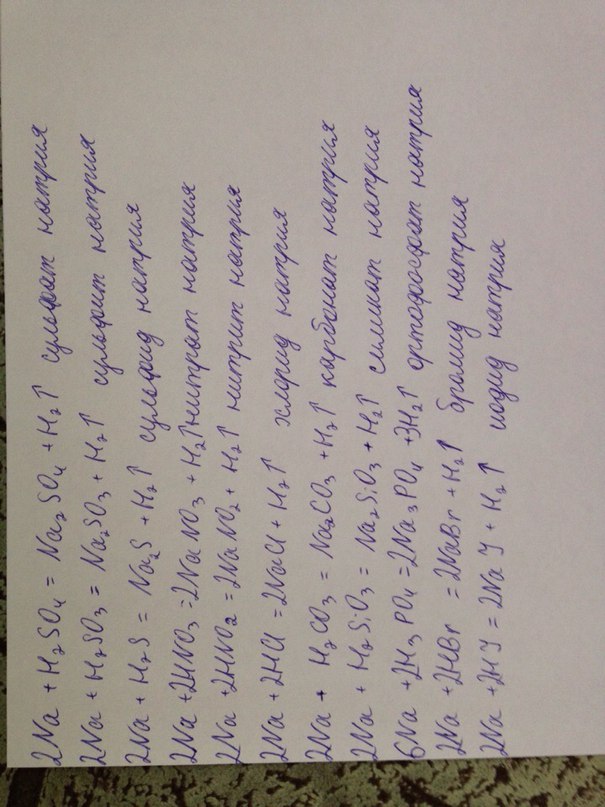 2Na + H₂SO₄ = Na₂SO₄ + H₂↑ сульфат натрия
2Na + H₂SO₃ = Na₂SO₃ + H₂↑ сульфит натрия
2Na + H₂S = Na₂S + H₂↑ сульфид натрия
2Na + 2HNO₃ = 2NaNO₃ + H₂↑ нитрат натрия
2Na + 2HNO₂ = 2NaNO₂ + H₂↑ нитрит натрия
2Na + 2HCl = 2NaCl + H₂↑ хлорид натрия
2Na + H₂CO₃ = Na₂CO₃ + H₂↑ карбонат натрия
2Na + H₂SiO₃ = Na₂SiO₃ + H₂↑ силикат натрия
6Na + 2H₃PO₄ = 2Na₃PO₄ + 3H₂↑ ортофосфат натрия
2Na + 2HBr = 2NaBr + H₂↑ бромид натрия
2Na + 2HJ = 2NaJ + H₂↑ иодид натрия